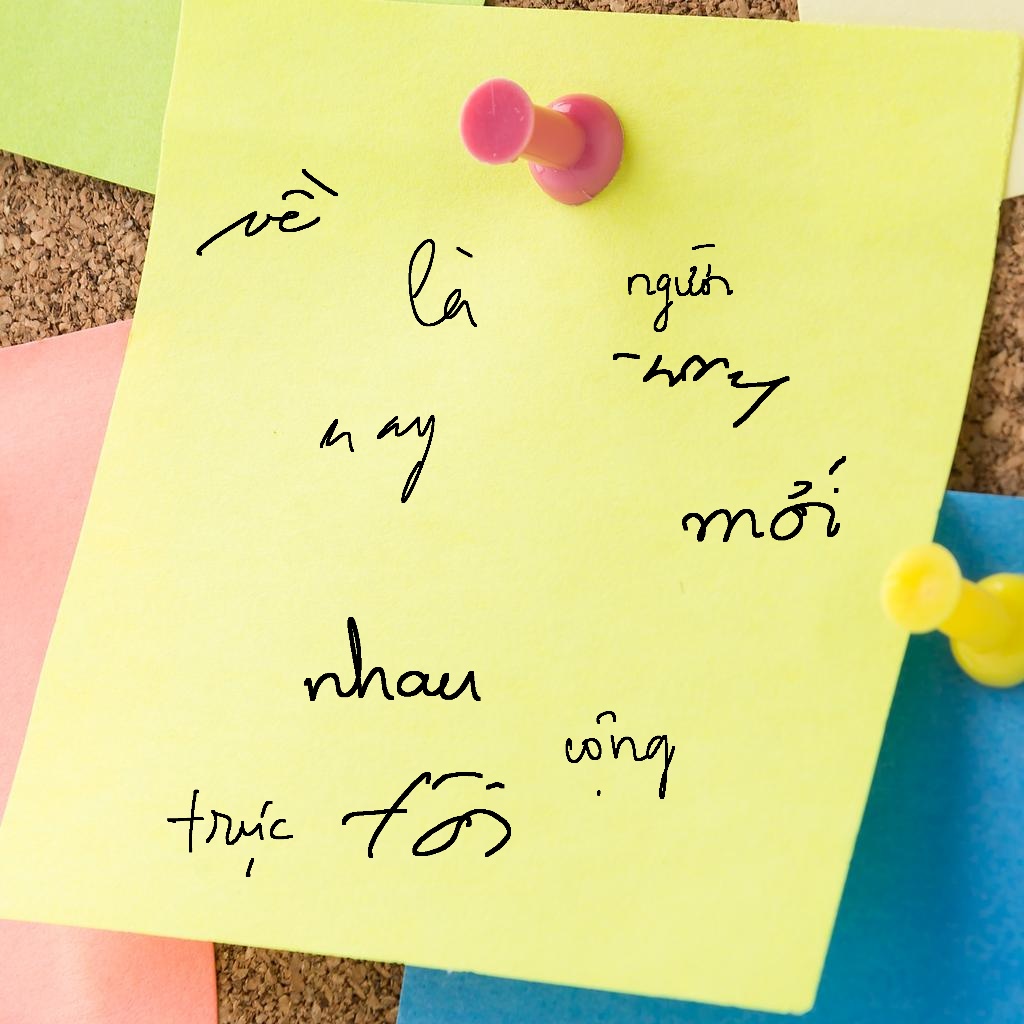 về
là người
nay
mới
nhau
cộng
trực tôi